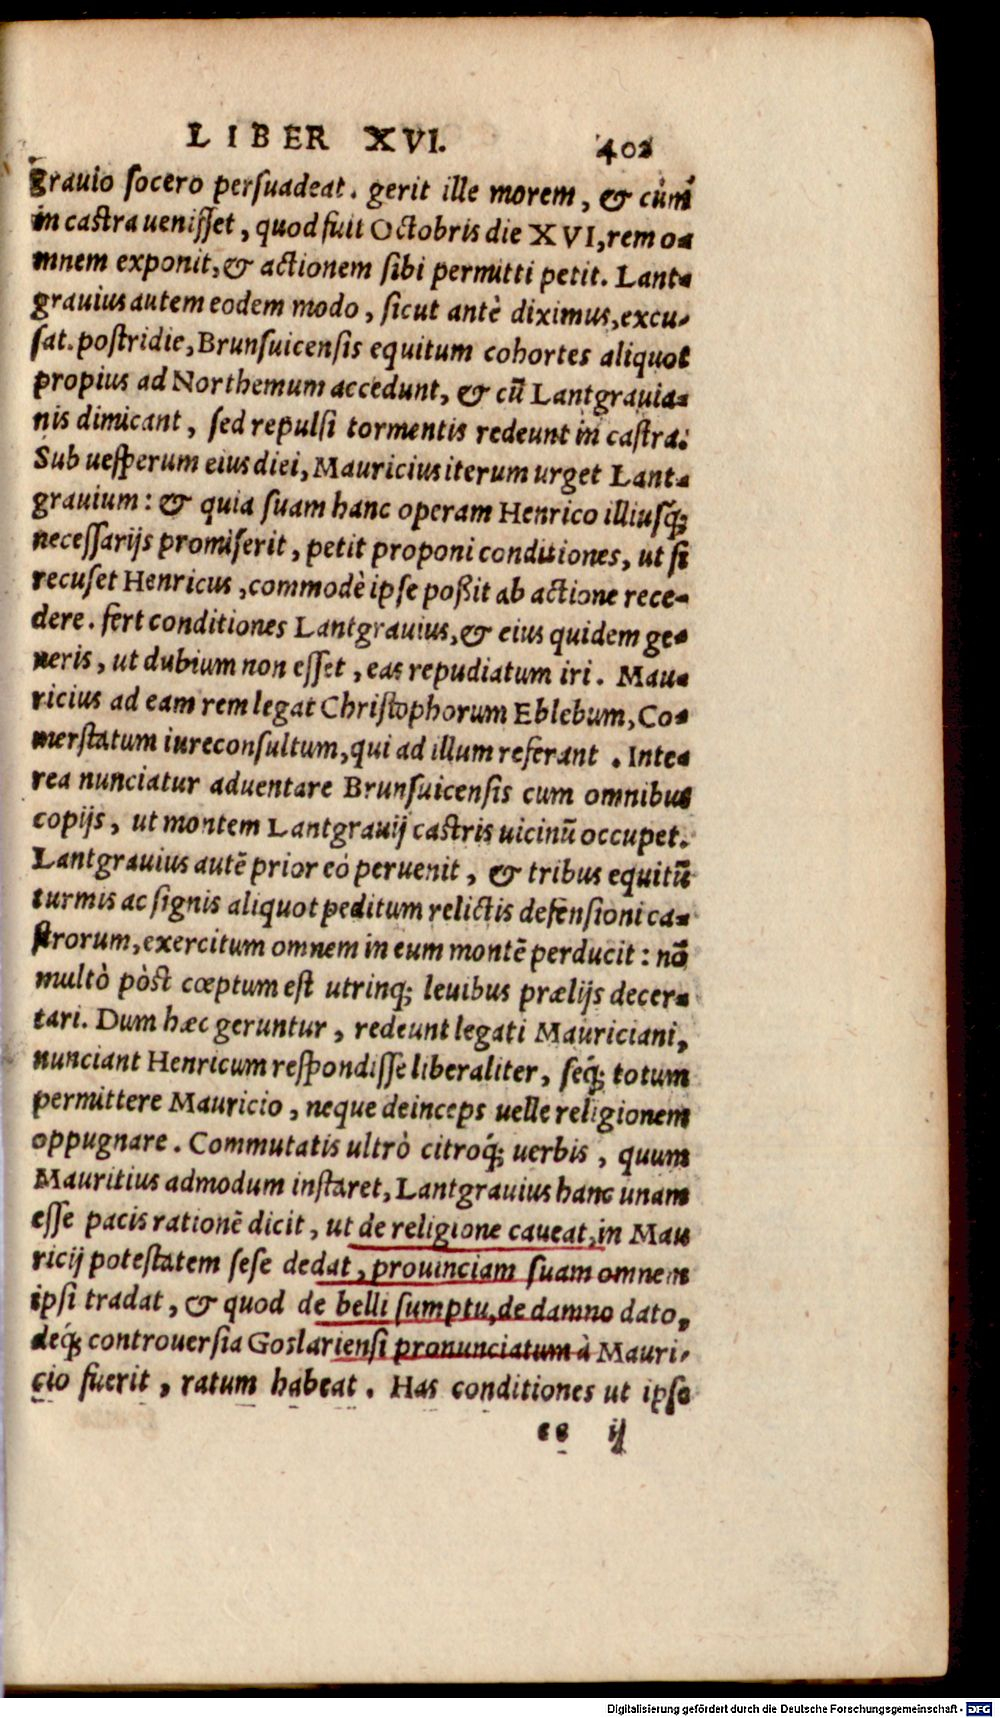 LIBER XVI. 402
grauio socero persuadeat. gerit ille morem, & cùm
in castra uenisset, quod fuit Octobris die XVI, rem o-
mnem exponit, & actionem sibi permitti petit. Lant-
grauius autem eodem modo, sicut antè diximus, excu-
sat. postridie, Brunsuicensis equitum cohortes aliquot
propius ad Northemum accedunt, & cū Lantgrauia-
nis dimicant, sed repulsi tormentis redeunt in castra.
Sub uesperum eius diei, Mauricius iterum urget Lant-
grauium: & quia suam hanc operam Henrico illiusq́;
necessarijs promiserit, petit proponi conditiones, ut si
recuset Henricus, commodè ipse poßit ab actione rece-
dere. fert conditiones Lantgrauius, & eius quidem ge-
neris, ut dubium non esset, eas repudiatum iri. Mau-
ricius ad eam rem legat Christophorum Eblebum, Co-
merstatum iureconsultum, qui ad illum referant. Inte-
rea nunciatur aduentare Brunsuicensis cum omnibus
copijs, ut montem Lantgrauij castris uicinū occupet.
Lantgrauius autē prior eò peruenit, & tribus equitū
turmis ac signis aliquot peditum relictis defensioni ca-
strorum, exercitum omnem in eum montē perducit: nō
multò pòst cœptum est utrinq; leuibus prælijs decer-
tari. Dum hæc geruntur, redeunt legati Mauriciani,
nunciant Henricum respondisse liberaliter, seq́; totum
permittere Mauricio, neque deinceps uelle religionem
oppugnare. Commutatis ultrò citroq́; uerbis, quum
Mauritius admodum instaret, Lantgrauius hanc unam
esse pacis rationē dicit, ut de religione caueat, in Mau
ricij potestatem sese dedat, prouinciam suam omnem
ipsi tradat, & quod de belli sumptu, de damno dato,
deq́; controuersia Goslariensi pronunciatum à Mauri-
cio fuerit, ratum habeat. Has conditiones ut ipse
ee ij
Digitalisierung gefördert durch die Deutsche Forschungsgemeinschaft - DFG